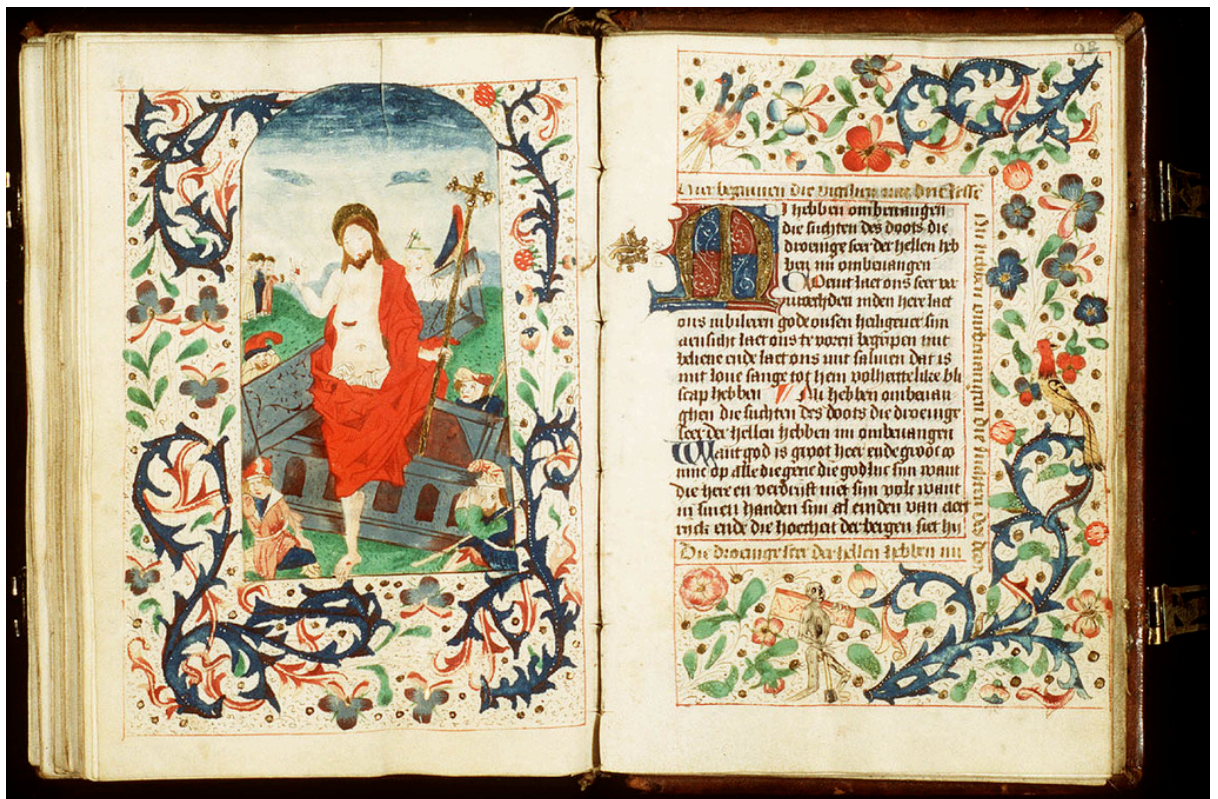 98
Hier beginnen die vigilien
I hebben ombeuangen
die suchten des doots die
droeuige seer der hellen heb
ben mi ombeuangen
Coemt laet ons seer ver
urouechden inden here laet
ons iubileren gode onsen heiligeuer sijn
aensicht laet ons te voren begripen mit
beliene ende laet ons mit salmen dat is
mit loue sange tot hem volhertelike bli
scap hebben Mi hebben ombeuan
ghen die suchten des doots die droeuige
seer der hellen hebben mi ombeuangen
Want god is groot heer ende groot co
ninc op alle die gene die gode sijn want
die here en verdrijft niet sijn volc want
in sinen handen sijn al einden van eert
rijck ende die hoecheit der bergen siet hi
Die droeuige seer der hellen hebben mi
Mi hebben ombeuangen die suchten des doot